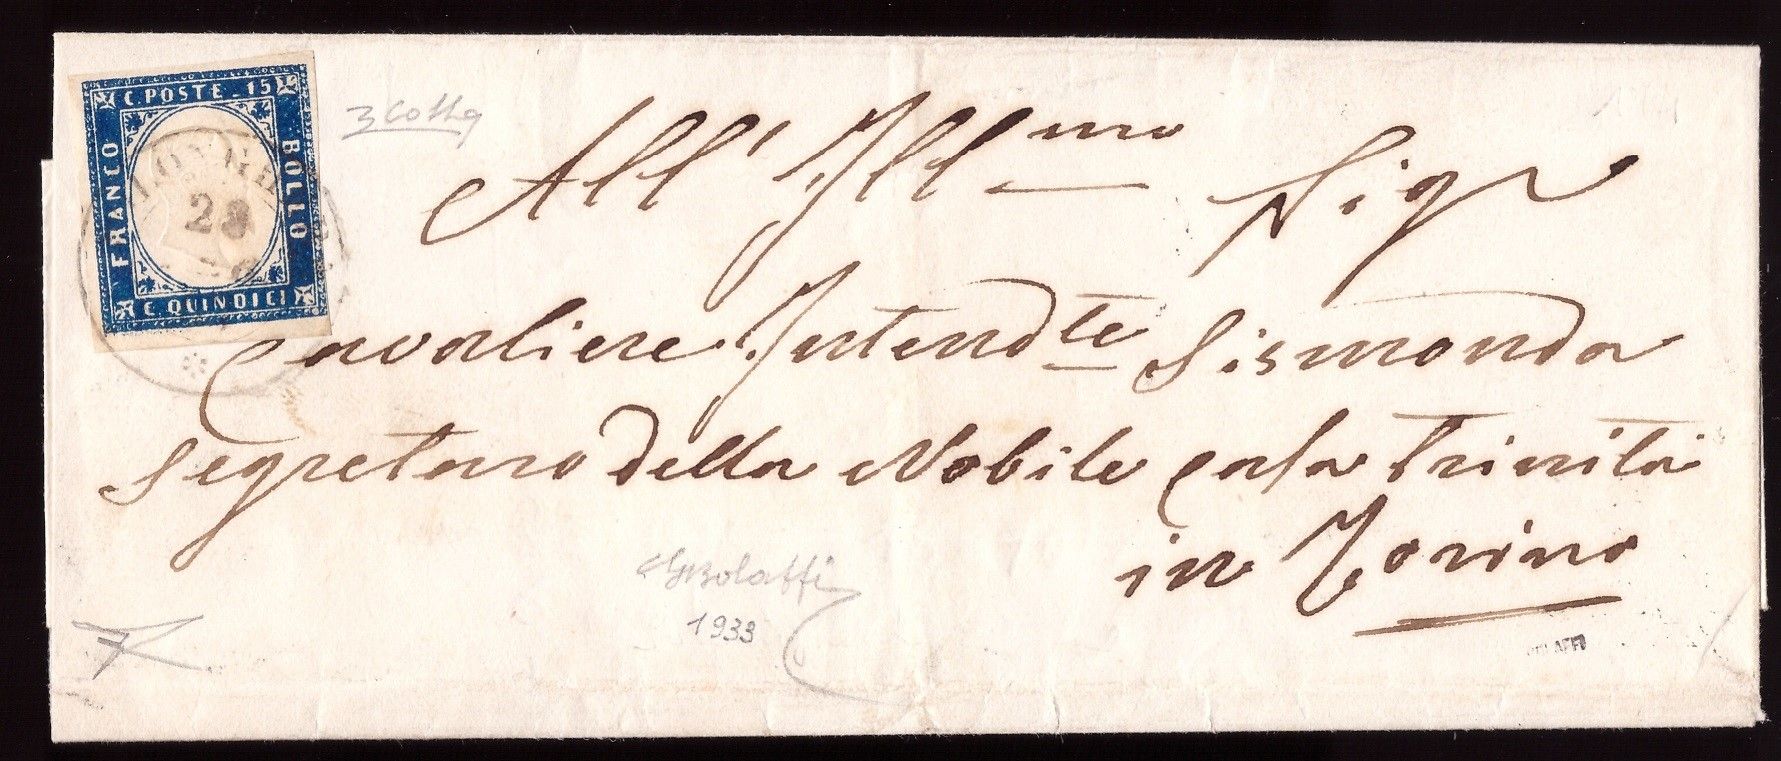 C. POSTE. 15
FRANCO
BOLLO
C. QUINDICI
28
All' Ill.mo Sigr
Cavaliere Intend.te Sismonda
Segretaro della Nobile casa Trinità
in Torino
Bolaffi
1933